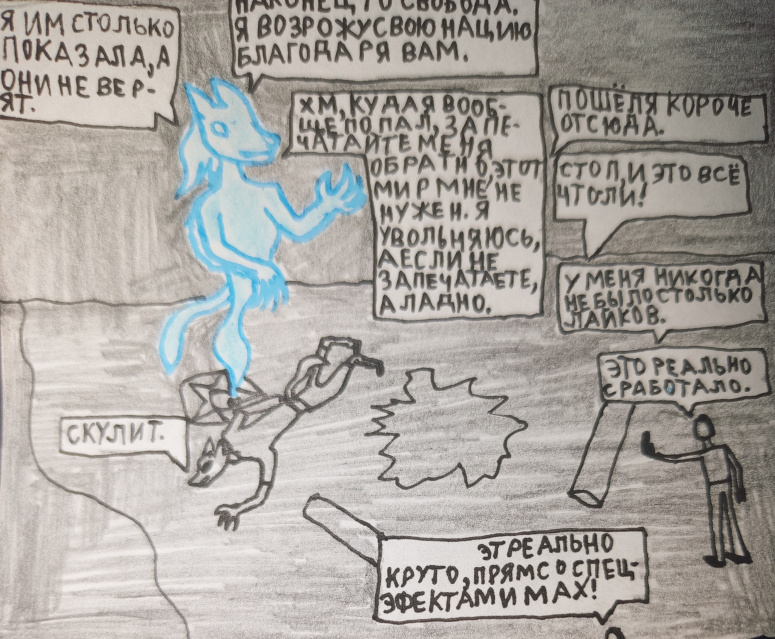 Я ИМ СТОЛЬКО
ПОКАЗАЛА, А
ОНИ НЕ ВЕР-
ЯТ.
НАКОНЕЦ ТО СВОБОДА.
Я ВОЗРОЖУ СВОЮ НАЦИЮ
БЛАГОДАРЯ ВАМ.
ХМ, КУДА Я ВООБ-
ЩЕ ПОПАЛ, ЗАПЕ-
ЧАТАЙТЕ МЕНЯ
ОБРАТНО, ЭТОТ
МИР МНЕ НЕ
НУЖЕН. Я
УВОЛЬНЯЮСЬ,
А ЕСЛИ НЕ
ЗАПЕЧАТАЕТЕ,
А ЛАДНО.
ПОШЁЛ Я КОРОЧЕ
ОТСЮДА.
СТОП, И ЭТО ВСЁ
ЧТОЛИ!
У МЕНЯ НИКОГДА
НЕ БЫЛО СТОЛЬКО
ЛАЙКОВ.
ЭТО РЕАЛЬНО
СРАБОТАЛО.
СКУЛИТ.
ЭТ РЕАЛЬНО
КРУТО, ПРЯМ СО СПЕЦ-
ЭФЕКТАМИ МАХ!